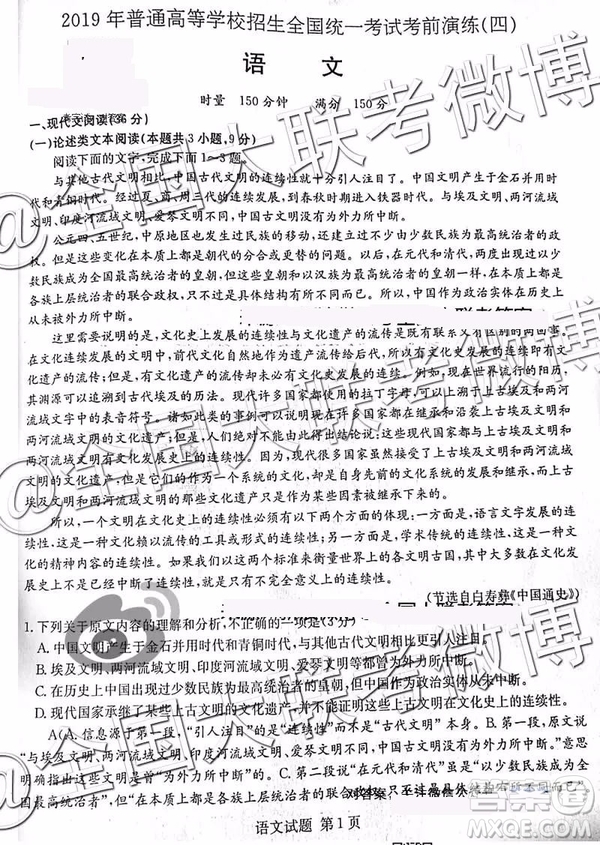 2019年普通高等学校招生全国统一考试考前演练(四)
语 文
时量 150分钟 满分 150分
一、现代文阅读(36分)
(一)论述类文本阅读(本题共3小题,9分)
阅读下面的文字,完成下面1~3题。
与其他古代文明相比,中国古代文明的连续性就十分引人注目了。中国文明产生于金石并用时
代和青铜时代。经过夏、商、周三代的连续发展,到春秋时期进入铁器时代。与埃及文明、两河流
域文明、印度河流域文明、爱琴文明不同,中国古文明没有为外力所中断。
公元四、五世纪,中原地区也发生过民族的移动,还建立过不少由少数民族成为统治者的政
权。但是这些变化在本质上都是朝代的分合或更替的问题。所以,在元代和清代,两度出现过以少
数民族成为全国最高统治者的皇朝,但这和以汉族为最高统治者的皇朝一样,在本质上都是各族上
层统治者的联合政权,只不过是具体结构有所不同而已。所以,中国作为政治实体在历史上
从未被外力所中断。
这里需要说明的是,文化史上发展的连续性与文化遗产的流传是既有联系又有区别的两回事。
在文化发展的文明中,前代文化自然地作为遗产流传给后代,因此文化发展的连续性
文化遗产的流传;但是,有文化遗产的流传却未必有文化史发展的连续。例如,现在世界流行的阳历,
其渊源可以追溯到古代埃及的历法。现代许多国家都使用的拉丁字母,
流域文字中的表音符号。诸如此类的事例可以说明现在许多国家都在继承和沿袭上古埃及文明和
两河流域文明的文化遗产,但是人们不能说,这些现代国家的文明都与上古埃及文明
域文明有连续性关系。因为,作为一个系统的文化,却是自身先前的文化系统的发展和延续,而上古
埃及文明和两河流域文明的那些文化遗产只是作为个别因素被吸收到其他文明中的。
所以,一个文明在文化史上的连续性必须有以下两个方面的表现:一方面是,语言文字发展的连
续性,这是一种文化赖以流传的工具或形式的连续性;另一方面是,学术传统的连续性,
的精神内容的连续性。如果以这两个标准来衡量世界上的各文明古国,其中大多数在文化发
展史上不是已经中断,就是只有不完全意义上的连续性。
(节选自白寿彝《中国通史》)
1.下列关于原文内容的理解和分析,不正确的一项是(3分)
A.中国文明产生于金石并用时代和青铜时代,与其他古代文明相比更引人注目。
B.埃及文明、两河流域文明、印度河流域文明、爱琴文明等文明都为外力所中断。
C.在历史上中国出现过少数民族为最高统治者的皇朝,但作为政治实体从未中断。
D.现代国家继承了某些上古文明的文化遗产,但并不一定就与上古文明有连续性。
(A.信息源于第一段,“引人注目”的是“连续性”而不是“古代文明”本身。B.第一段
“与埃及文明、两河流域文明、印度河流域文明、爱琴文明不同,中国古文明没有为外力所中断”的意思
明确指出这些文明为外力所中断。C.第二段说“在元代和清代
在本质上都是各族上层统治者的联合政权,只不过是具体结构有所不同而已”
语文试题 第1页
@全国大联考微博